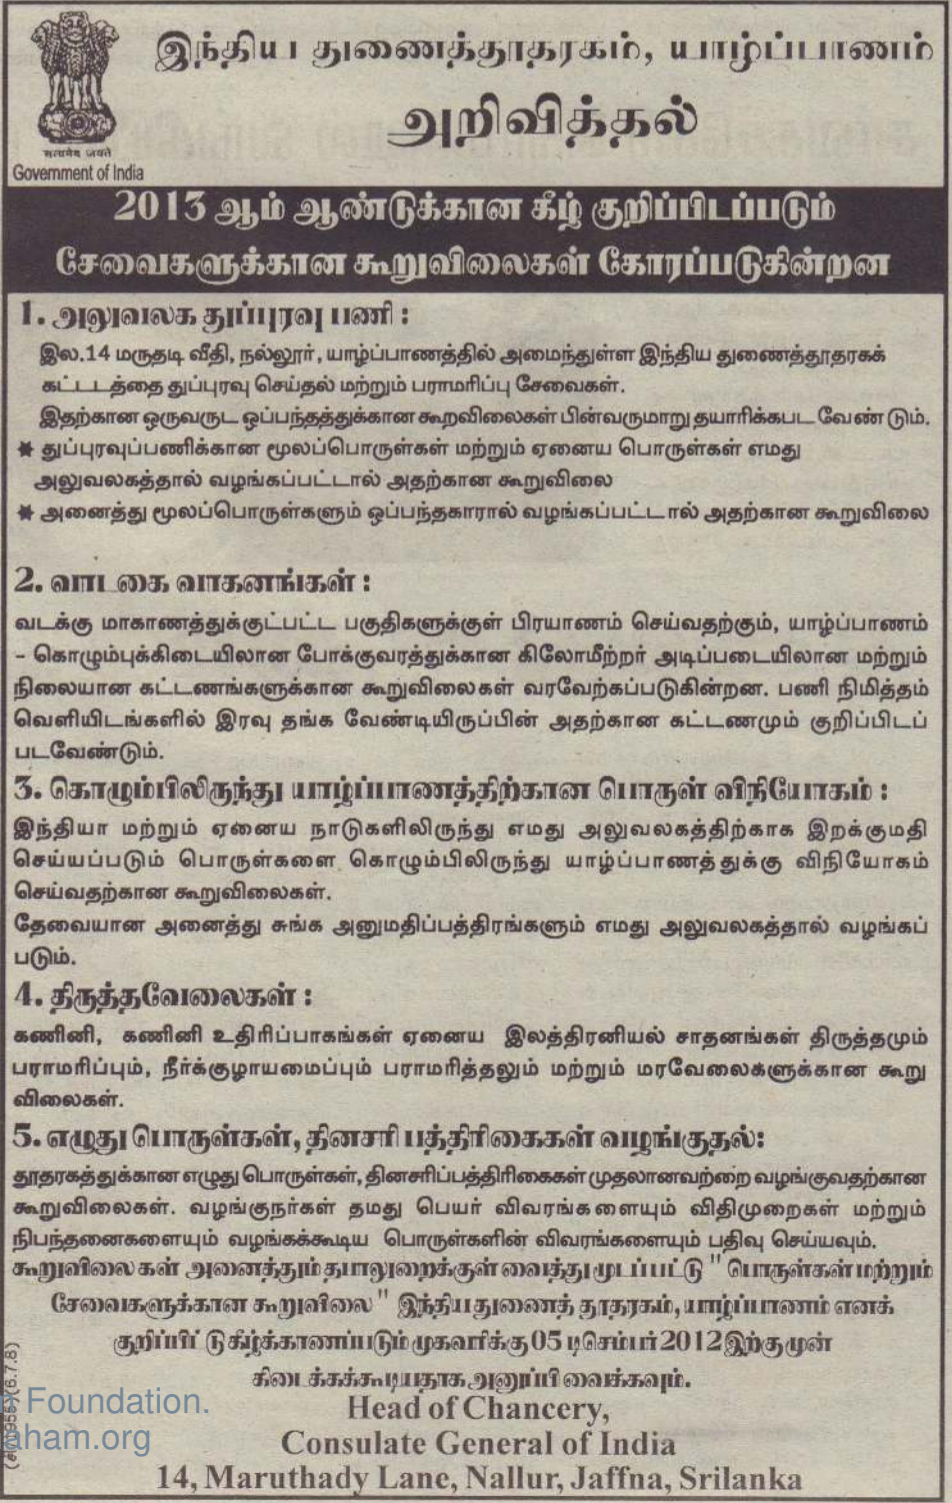 இந்திய துணைத்தூதரகம், யாழ்ப்பாணம்
அறிவித்தல்
सत्यमेव जयते
Government of India
2013 ஆம் ஆண்டுக்கான கீழ் குறிப்பிடப்படும்
சேவைகளுக்கான கூறுவிலைகள் கோரப்படுகின்றன
1. அலுவலக துப்புரவு பணி :
இல.14 மருதடி வீதி, நல்லூர், யாழ்ப்பாணத்தில் அமைந்துள்ள இந்திய துணைத்தூதரகக்
கட்டடத்தை துப்புரவு செய்தல் மற்றும் பராமரிப்பு சேவைகள்.
இதற்கான ஒருவருட ஒப்பந்தத்துக்கான கூறவிலைகள் பின்வருமாறு தயாரிக்கபட வேண்டும்.
* துப்புரவுப்பணிக்கான மூலப்பொருள்கள் மற்றும் ஏனைய பொருள்கள் எமது
அலுவலகத்தால் வழங்கப்பட்டால் அதற்கான கூறுவிலை
* அனைத்து மூலப்பொருள்களும் ஒப்பந்தகாரரால் வழங்கப்பட்டால் அதற்கான கூறுவிலை
2. வாடகை வாகனங்கள் :
வடக்கு மாகாணத்துக்குட்பட்ட பகுதிகளுக்குள் பிரயாணம் செய்வதற்கும், யாழ்ப்பாணம்
- கொழும்புக்கிடையிலான போக்குவரத்துக்கான கிலோமீற்றர் அடிப்படையிலான மற்றும்
நிலையான கட்டணங்களுக்கான கூறுவிலைகள் வரவேற்கப்படுகின்றன. பணி நிமித்தம்
வெளியிடங்களில் இரவு தங்க வேண்டியிருப்பின் அதற்கான கட்டணமும் குறிப்பிடப்
படவேண்டும்.
3. கொழும்பிலிருந்து யாழ்ப்பாணத்திற்கான பொருள் விநியோகம் :
இந்தியா மற்றும் ஏனைய நாடுகளிலிருந்து எமது அலுவலகத்திற்காக இறக்குமதி
செய்யப்படும் பொருள்களை கொழும்பிலிருந்து யாழ்ப்பாணத்துக்கு விநியோகம்
செய்வதற்கான கூறுவிலைகள்.
தேவையான அனைத்து சுங்க அனுமதிப்பத்திரங்களும் எமது அலுவலகத்தால் வழங்கப்
படும்.
4. திருத்தவேலைகள் :
கணினி, கணினி உதிரிப்பாகங்கள் ஏனைய இலத்திரனியல் சாதனங்கள் திருத்தமும்
பராமரிப்பும், நீர்க்குழாயமைப்பும் பராமரித்தலும் மற்றும் மரவேலைகளுக்கான கூறு
விலைகள்.
5. எழுது பொருள்கள், தினசரி பத்திரிகைகள் வழங்குதல்:
தூதரகத்துக்கான எழுது பொருள்கள், தினசரிப்பத்திரிகைகள் முதலானவற்றை வழங்குவதற்கான
கூறுவிலைகள். வழங்குநர்கள் தமது பெயர் விவரங்களையும் விதிமுறைகள் மற்றும்
நிபந்தனைகளையும் வழங்கக்கூடிய பொருள்களின் விவரங்களையும் பதிவு செய்யவும்.
கூறுவிலைகள் அனைத்தும் தபாலுறைக்குள் வைத்து மூடப்பட்டு " பொருள்கள் மற்றும்
சேவைகளுக்கான கூறுவிலை " இந்திய துணைத் தூதரகம், யாழ்ப்பாணம் எனக்
குறிப்பிட்டு கீழ்க்காணப்படும் முகவரிக்கு 05 டிசெம்பர் 2012 இற்கு முன்
கிடைக்கக்கூடியதாக அனுப்பி வைக்கவும்.
Head of Chancery,
Consulate General of India
14, Maruthady Lane, Nallur, Jaffna, Srilanka
Foundation.
aham.org